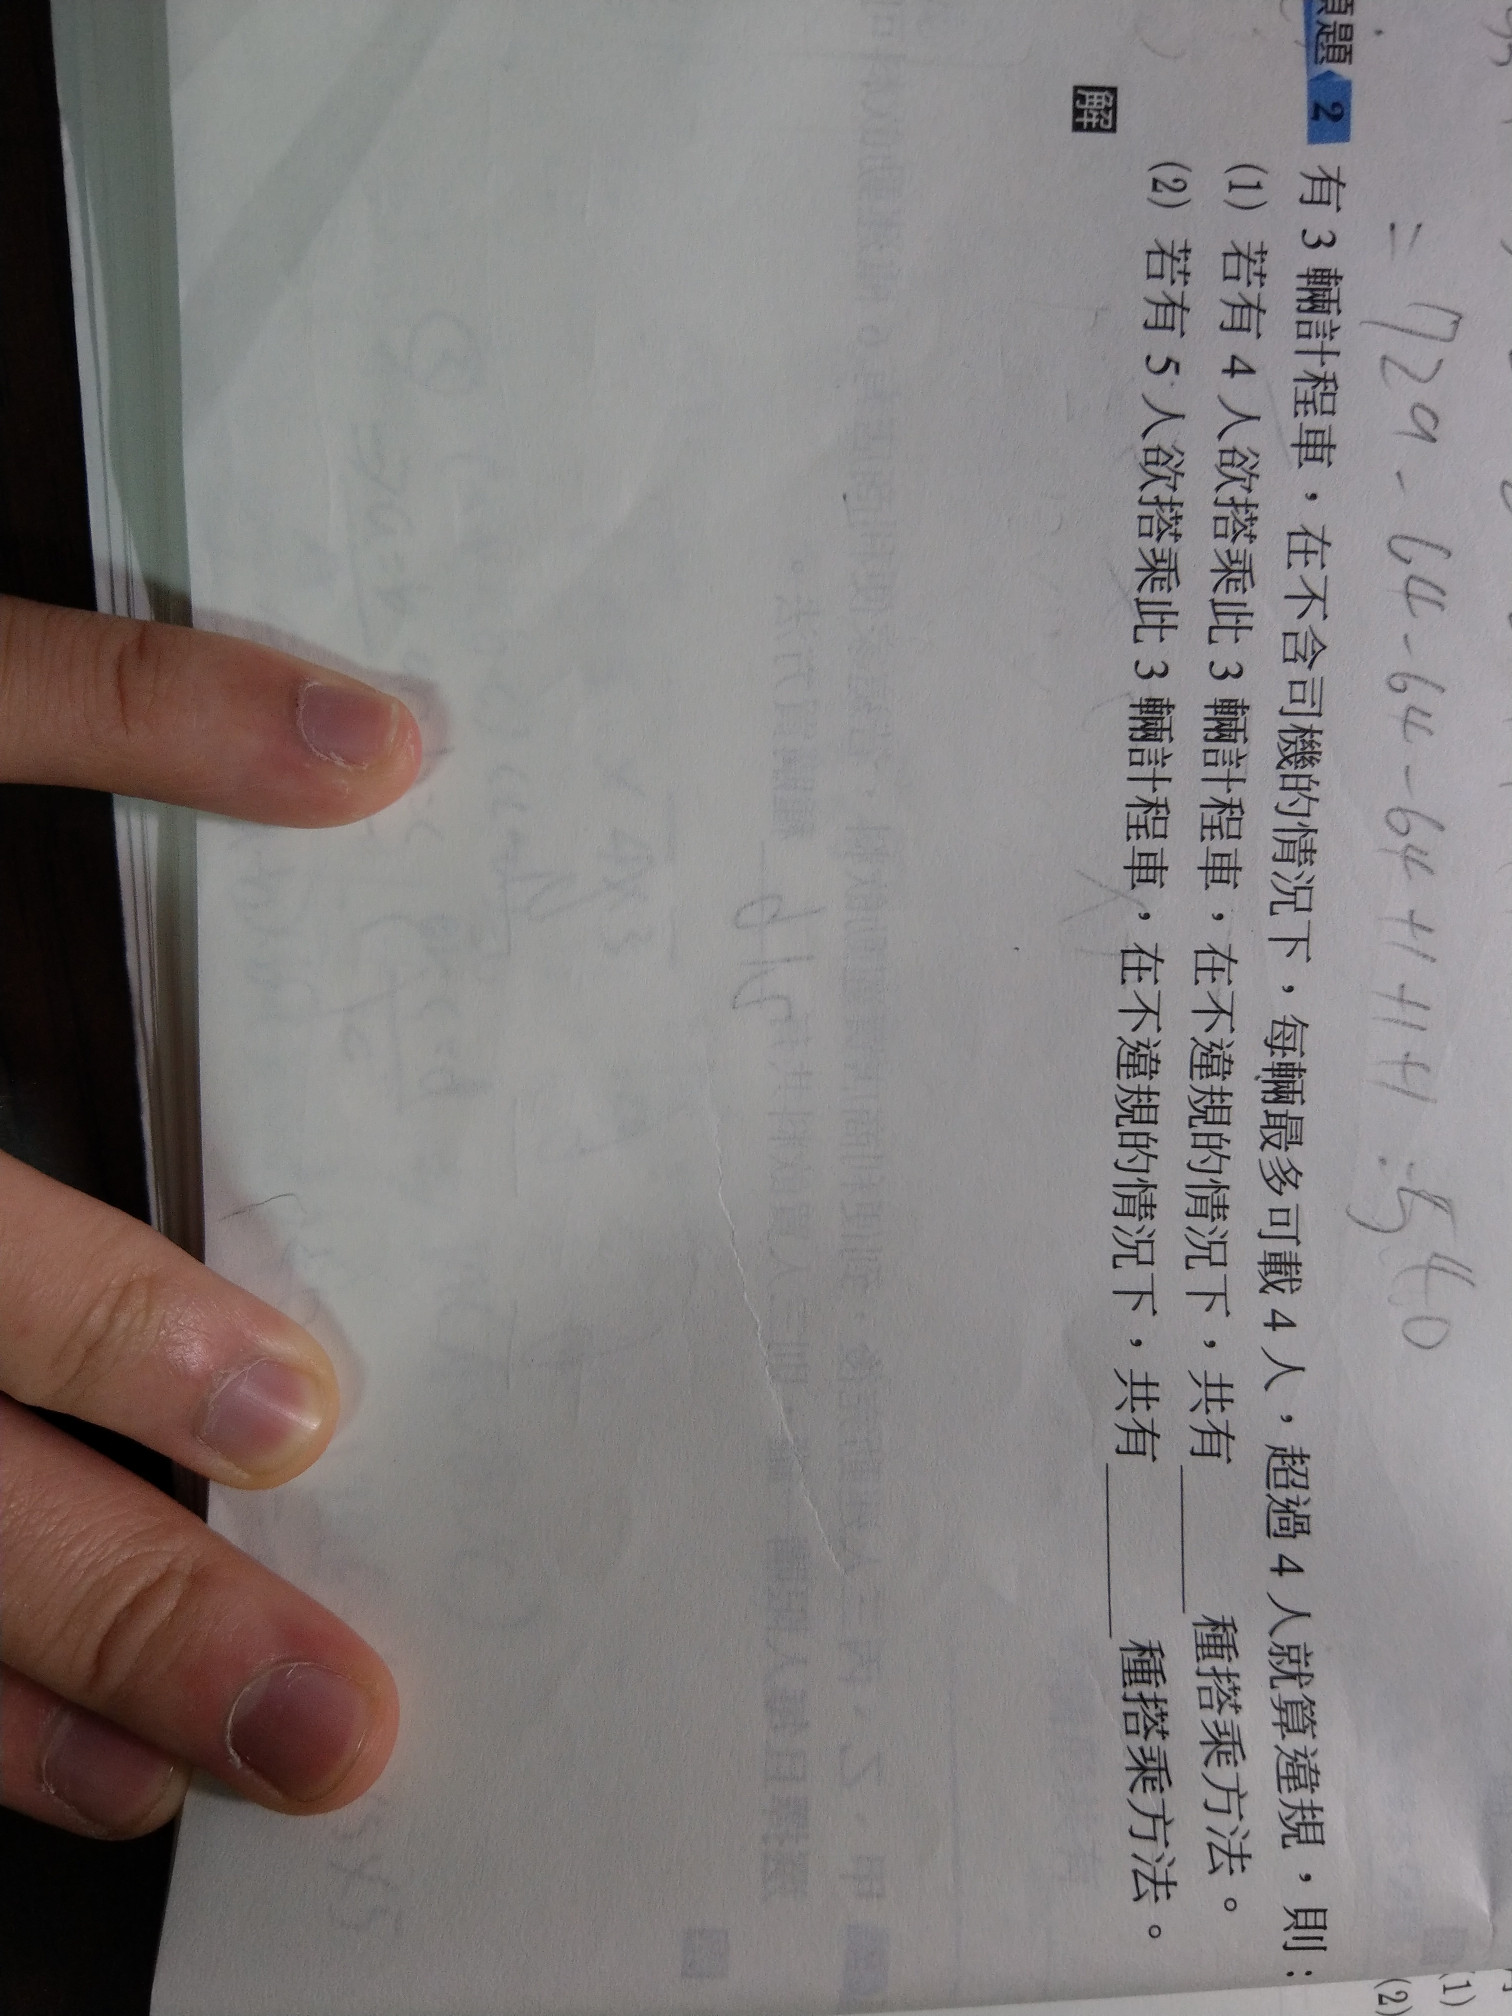 = 729 - 64 - 64 - 64 + 1 + 1 + 1 = 540
類題 2 有 3 輛計程車,在不含司機的情況下,每輛最多可載 4 人,超過 4 人就算違規,則:
(1) 若有 4 人欲搭乘此 3 輛計程車,在不違規的情況下,共有______種搭乘方法。
(2) 若有 5 人欲搭乘此 3 輛計程車,在不違規的情況下,共有______種搭乘方法。
解
(1)
(2)